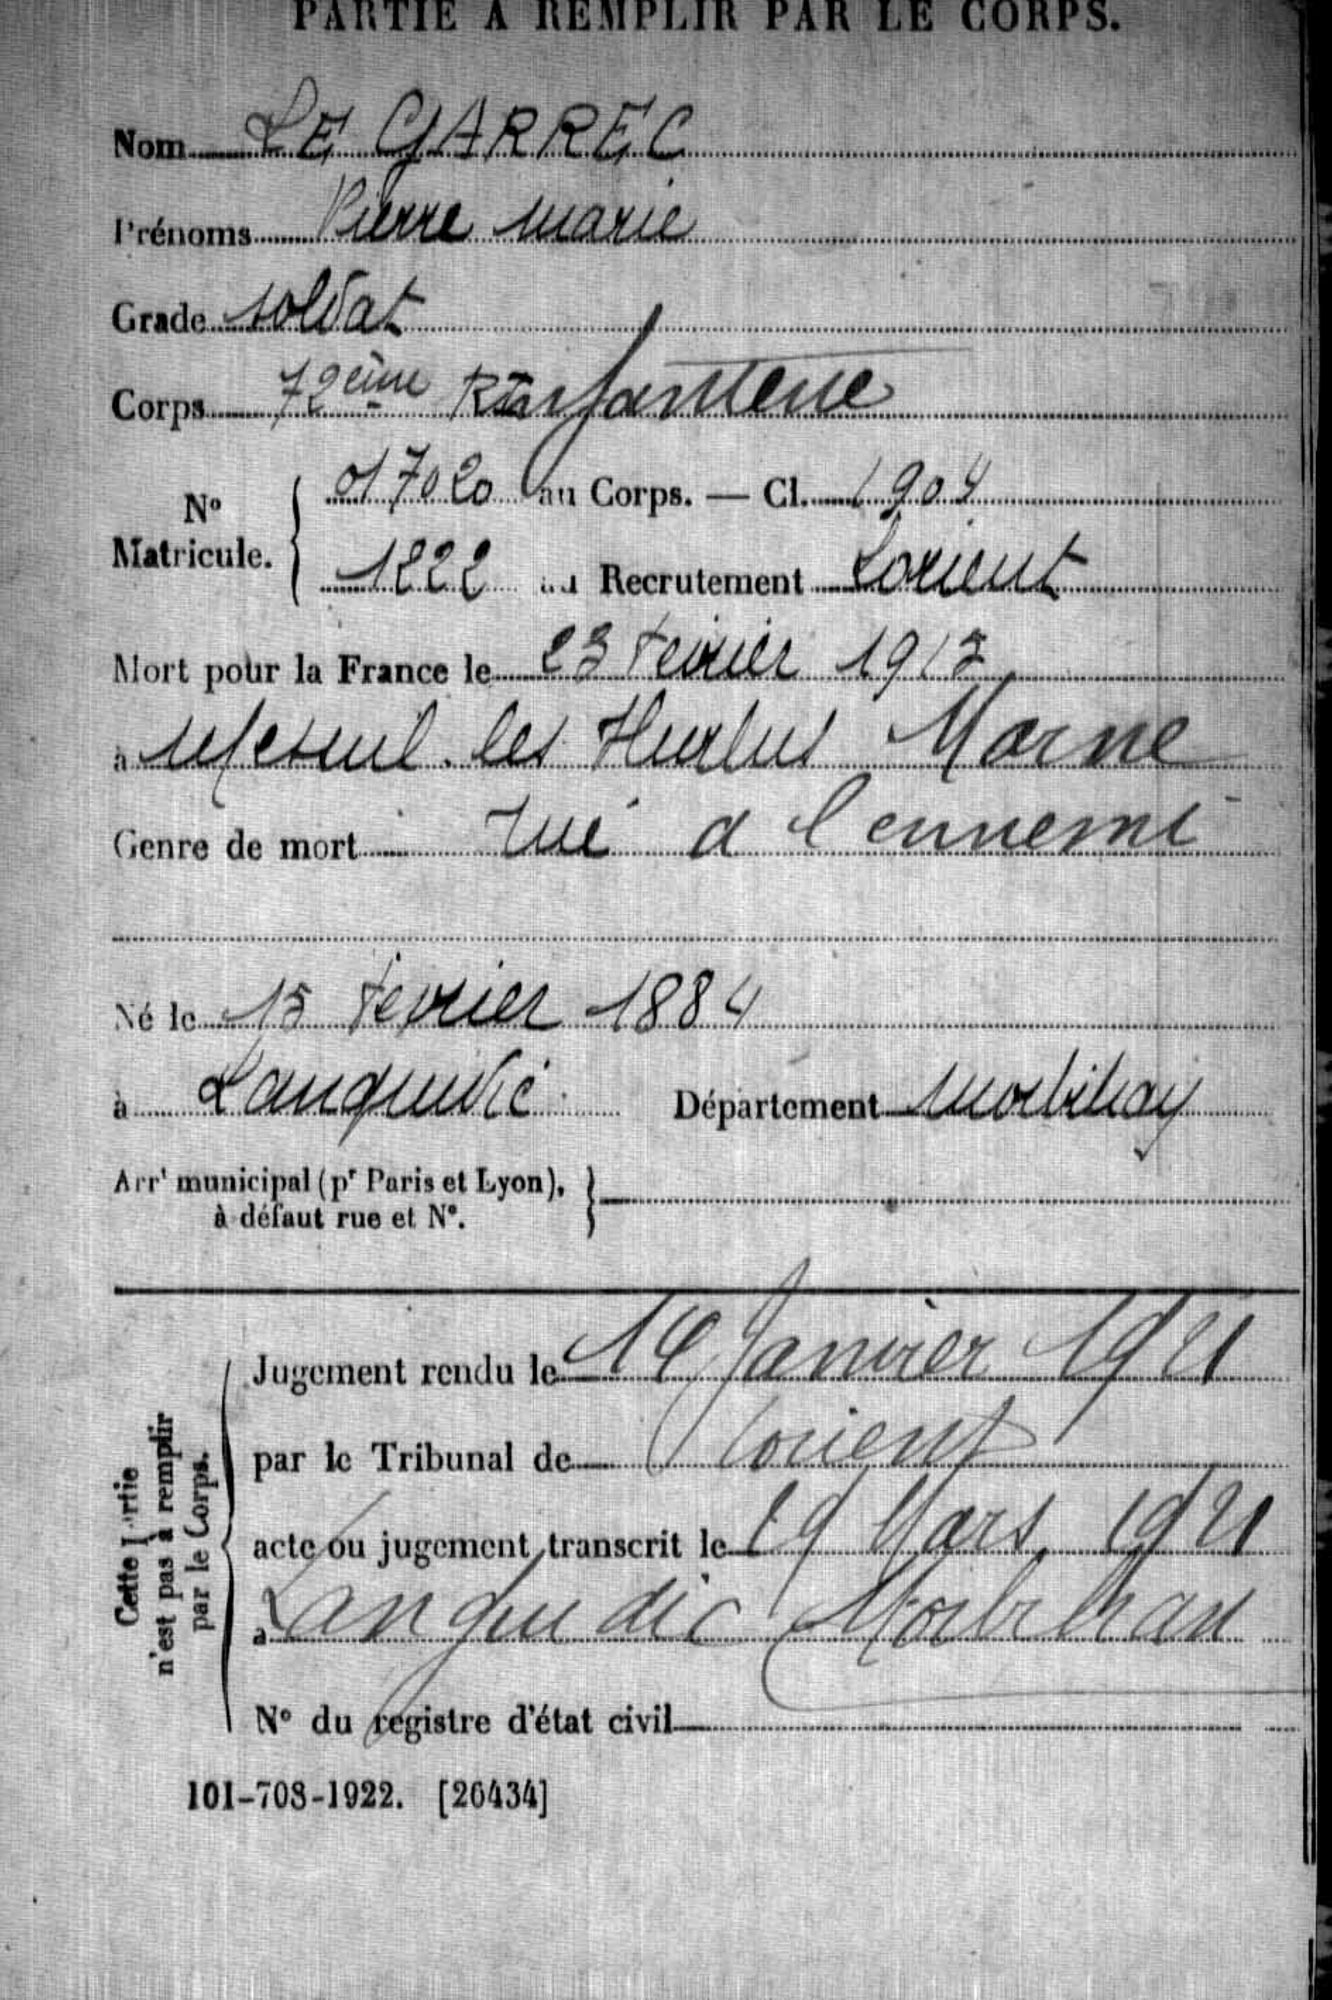 PARTIE A REMPLIR PAR LE CORPS.
Nom LE GARREC
Prénoms Pierre Marie
Grade soldat
Corps 72ème R Infanterie
N° Matricule. { 017020 au Corps. — Cl. 1904
1222 au Recrutement Lorient
Mort pour la France le 23 Février
à Mesnil. les Hurlus Marne
Genre de mort Tué a l'ennemi
Né le 15 Février 1884
à Languidic Département Morbihan
Arrt municipal (pr Paris et Lyon), }
à défaut rue et N°.
Cette partie
n'est pas à remplir
par le Corps.
Jugement rendu le Janvier 1921
par le Tribunal de Lorient
acte ou jugement transcrit le 19 Mars 1921
à Languidic Morbihan
N° du registre d'état civil
101-708-1922. [26434]